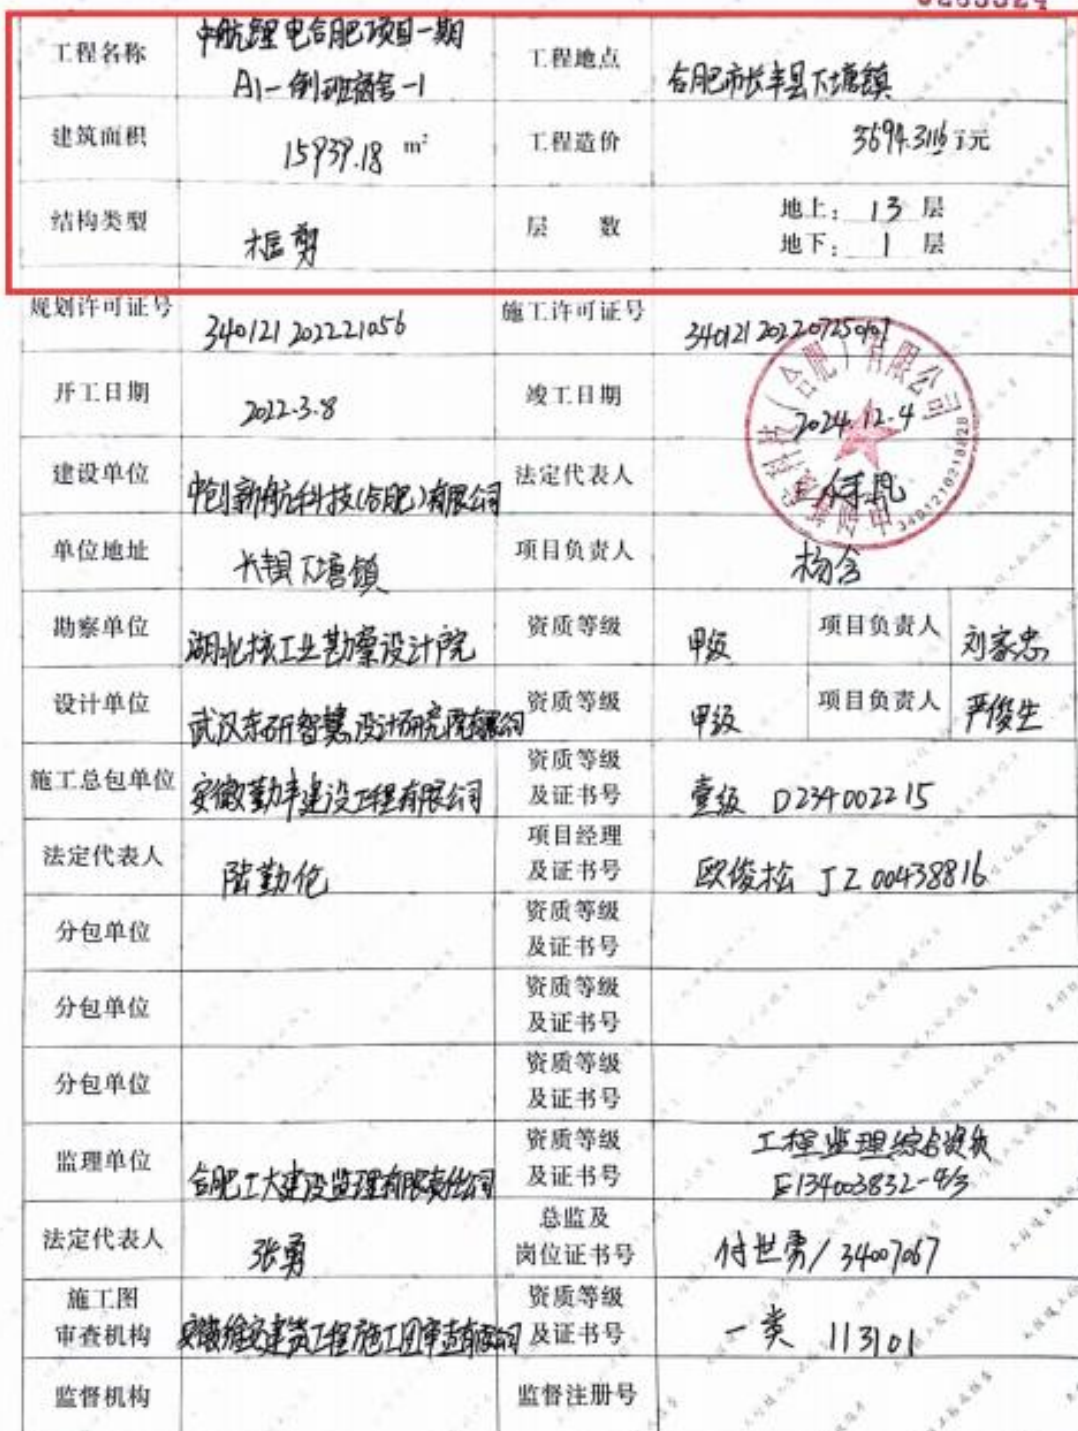 工程名称 中航锂电合肥项目一期 工程地点 合肥市长丰县下塘镇
A1-倒班宿舍-1
建筑面积 15939.18 m² 工程造价 3694.3116万元
结构类型 框剪 层 数 地上: 13 层
地下: 1 层
规划许可证号 340121202221056 施工许可证号
开工日期 2022.3.8 竣工日期 2024.12.4
建设单位 中创新航科技(合肥)有限公司 法定代表人
单位地址 长丰县下塘镇 项目负责人 杨含
勘察单位 湖北核工业勘察设计院 资质等级 甲级 项目负责人 刘家忠
设计单位 武汉东研智慧设计研究院有限公司 资质等级 甲级 项目负责人 严俊生
施工总包单位 安徽勤丰建设工程有限公司 资质等级 壹级 D234002215
及证书号
法定代表人 陆勤伦 项目经理 欧俊松 JZ00438816
及证书号
分包单位 资质等级
及证书号
分包单位 资质等级
及证书号
分包单位 资质等级
及证书号
监理单位 合肥工大建设监理有限责任公司 资质等级 工程监理综合资质
及证书号 E134003832-4/3
法定代表人 张勇 总监及 付世勇/34007067
岗位证书号
施工图 资质等级
审查机构 安徽维安建筑工程施工图审查有限公司 及证书号 一类 113101
监督机构 监督注册号
3401210210828